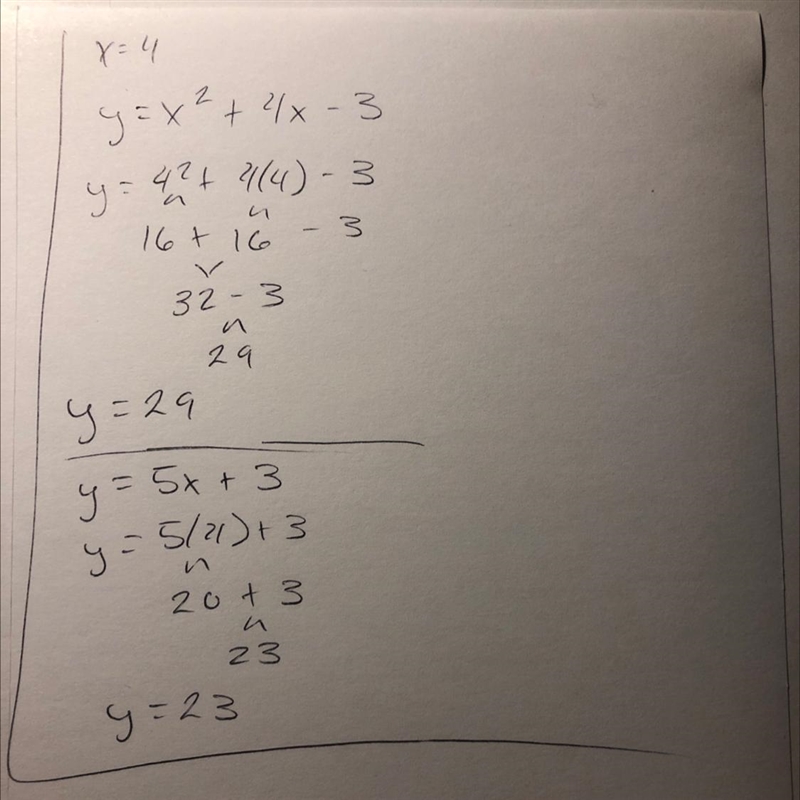 x = 4
y = x² + 4x - 3
y = 4² + 4(4) - 3
16 + 16 - 3
32 - 3
29
y = 29
y = 5x + 3
y = 5(4) + 3
20 + 3
23
y = 23